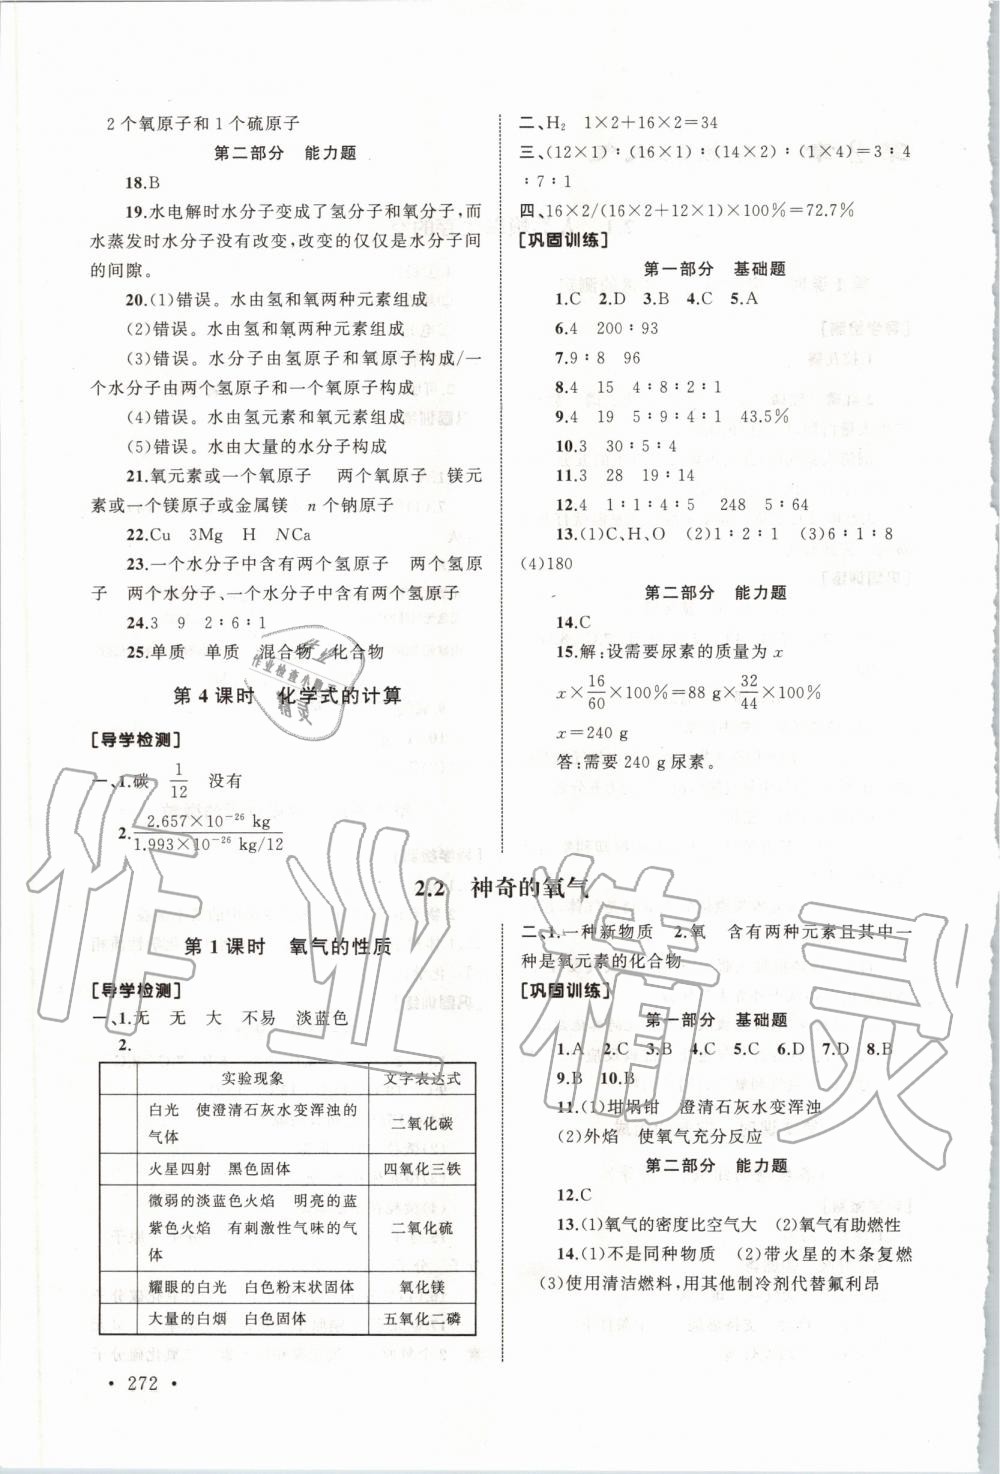 2个氧原子和1个硫原子
第二部分 能力题
18.B
19.水电解时水分子变成了氢分子和氧分子,而
水蒸发时水分子没有改变,改变的仅仅是水分子间
的间隙。
20.(1)错误。水由氢和氧两种元素组成
(2)错误。水由氢和氧两种元素组成
(3)错误。水分子由氢原子和氧原子构成/一
个水分子由两个氢原子和一个氧原子构成
(4)错误。水由氢元素和氧元素组成
(5)错误。水由大量的水分子构成
21.氧元素或一个氧原子 两个氧原子 镁元
素或一个镁原子或金属镁 n个钠原子
22.Cu 3Mg H NCa
23.一个水分子中含有两个氢原子 两个氢原
子 两个水分子、一个水分子中含有两个氢原子
24.3 9 2∶6∶1
25.单质 单质 混合物 化合物
第4课时 化学式的计算
[导学检测]
一、1.碳 1/12 没有
2. 2.657×10⁻²⁶ kg / 1.993×10⁻²⁶ kg/12
二、H₂ 1×2+16×2=34
三、(12×1)∶(16×1)∶(14×2)∶(1×4)=3∶4
∶7∶1
四、16×2/(16×2+12×1)×100%=72.7%
[巩固训练]
第一部分 基础题
1.C 2.D 3.B 4.C 5.A
6.4 200∶93
7.9∶8 96
8.4 15 4∶8∶2∶1
9.4 19 5∶9∶4∶1 43.5%
10.3 30∶5∶4
11.3 28 19∶14
12.4 1∶1∶4∶5 248 5∶64
13.(1)C、H、O (2)1∶2∶1 (3)6∶1∶8
(4)180
第二部分 能力题
14.C
15.解:设需要尿素的质量为x
x×16/60×100%=88 g×32/44×100%
x=240 g
答:需要240 g尿素。
2.2 神奇的氧气
第1课时 氧气的性质
[导学检测]
一、1.无 无 大 不易 淡蓝色
2.
实验现象 文字表达式
白光 使澄清石灰水变浑浊的
气体 二氧化碳
火星四射 黑色固体 四氧化三铁
微弱的淡蓝色火焰 明亮的蓝
紫色火焰 有刺激性气味的气
体 二氧化硫
耀眼的白光 白色粉末状固体 氧化镁
大量的白烟 白色固体 五氧化二磷
二、1.一种新物质 2.氧 含有两种元素且其中一
种是氧元素的化合物
[巩固训练]
第一部分 基础题
1.A 2.C 3.B 4.C 5.C 6.D 7.D 8.B
9.B 10.B
11.(1)坩埚钳 澄清石灰水变浑浊
(2)外焰 使氧气充分反应
第二部分 能力题
12.C
13.(1)氧气的密度比空气大 (2)氧气有助燃性
14.(1)不是同种物质 (2)带火星的木条复燃
(3)使用清洁燃料,用其他制冷剂代替氟利昂
• 272 •
作业精灵
作业
作业检查小
精灵